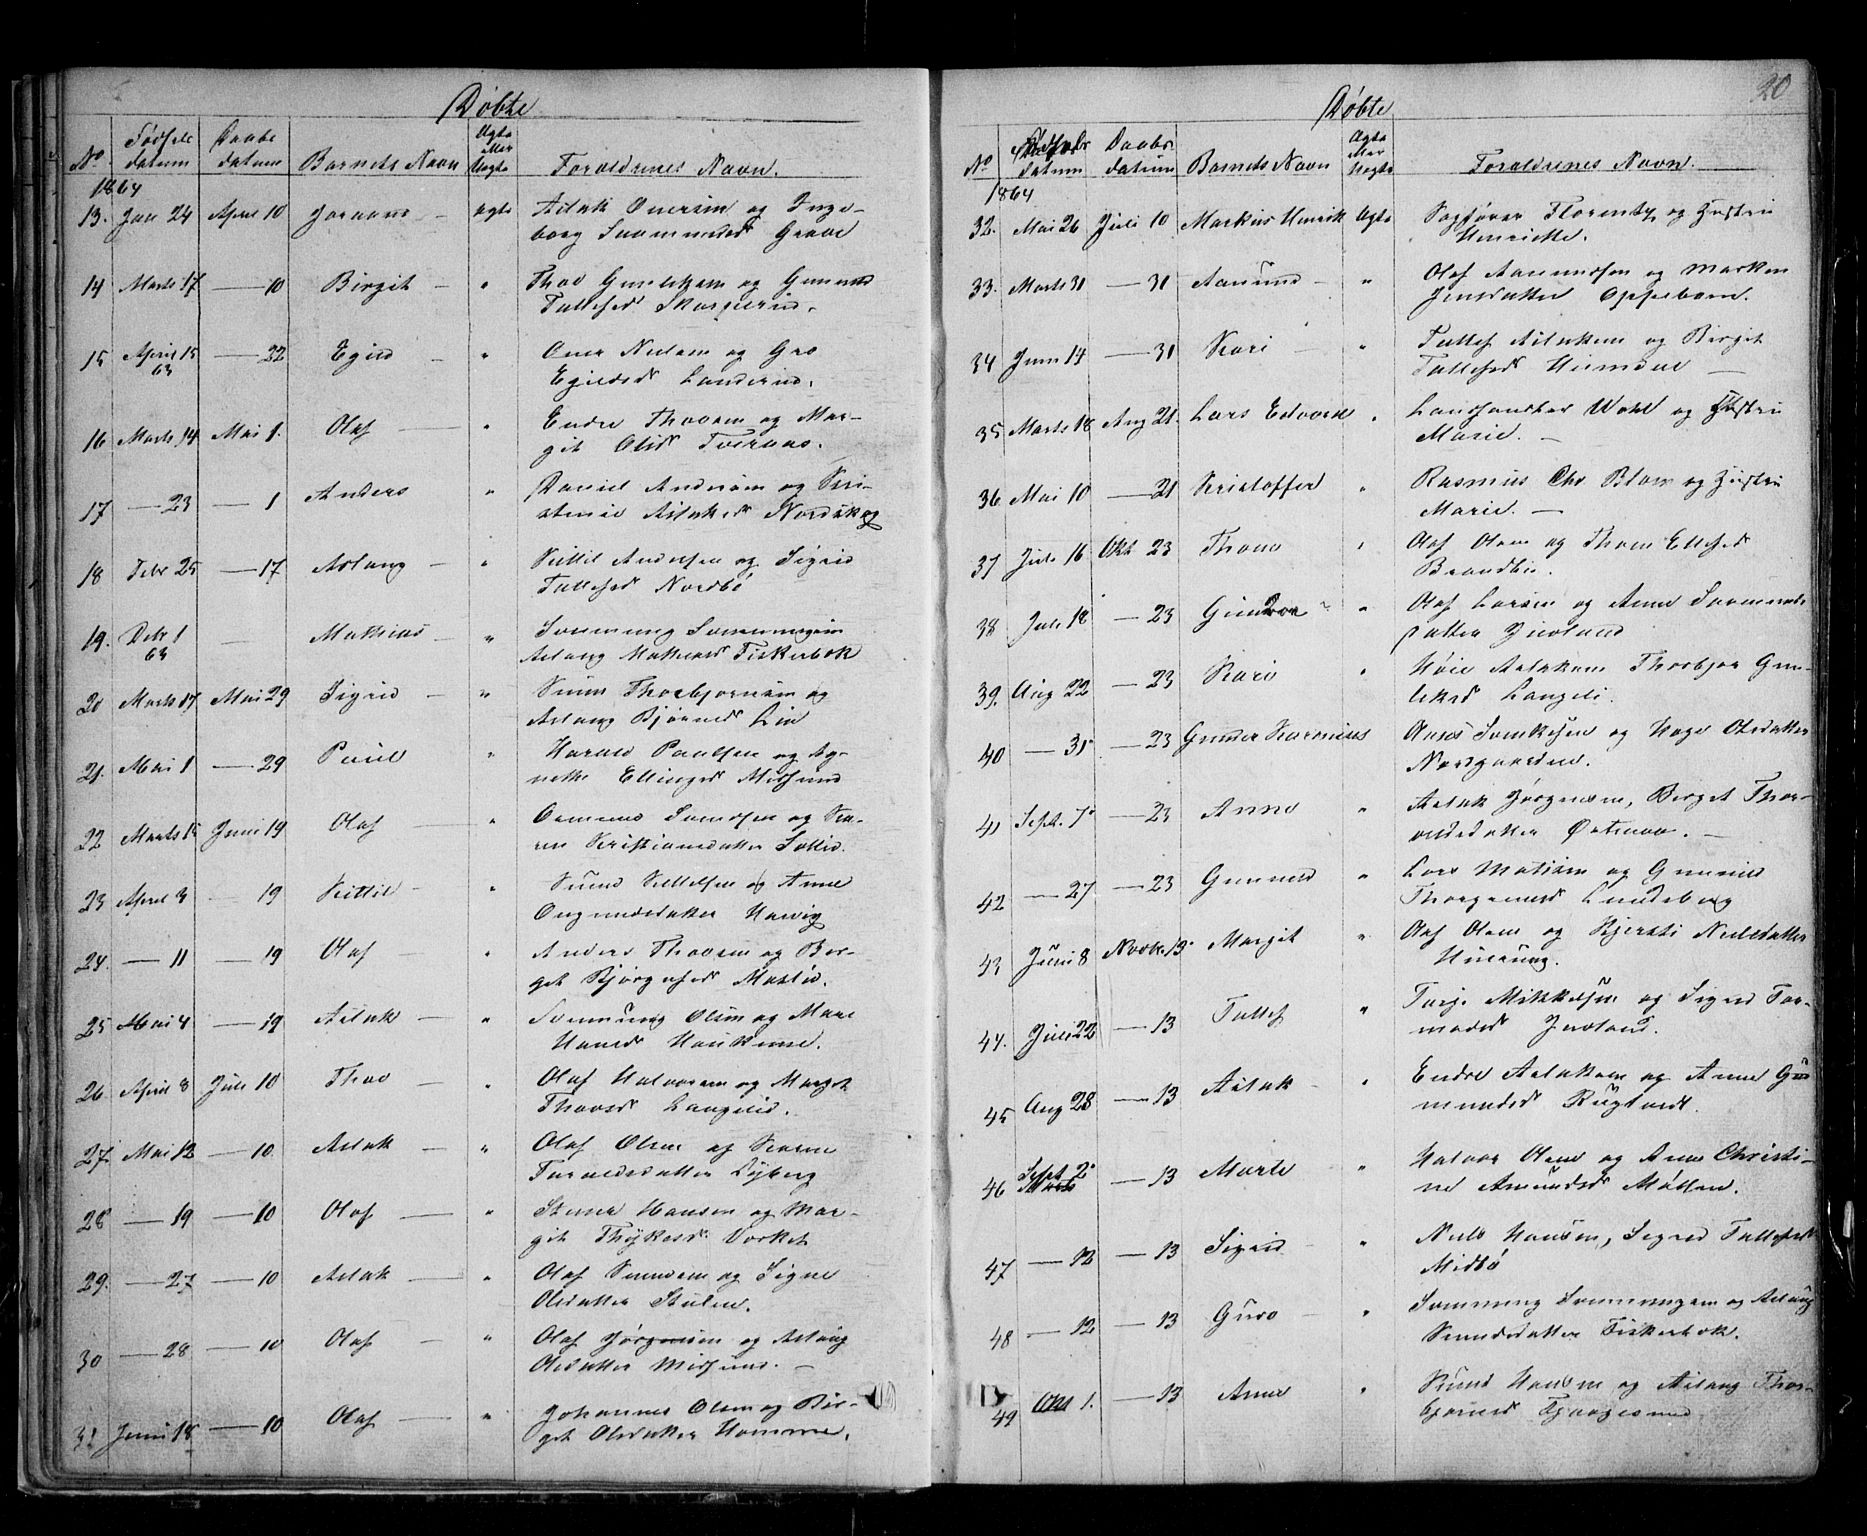 Døbte
No Fødsels datum Daabs datum Barnets Navn Ægte eller Uægte Forældrenes Navn.
1864
13. Jan 24 April 10 Joraand – ægte Aslak Onersen og Inge-
borg Grave
14 Marts 17 — 10 Birgit – " Thov Gunleksen og Gunuld
Tallefsd
15 April 15 — 22 Egild – " Aner Nielsen og Gro
63 Egildsd Landerud.
16 Marts 14 Mai 1. Olaf — " Endre Thovsen og Mar-
git Olsd Tveraas.
17 — 23 — 1 Anders " Daniel Andersen og Kri-
stense Aslaksd Nordskog
18 Febr 25 — 17 Aslaug – " Kittil Andersen og Sigrid
Tallefsd Nordbø
19. Debr 1 – Mathias – " Sveinung Sveinungsen
63 Aslaug Mathiasd Fiskerbæk
20 Marts 17 Mai 29 Sigrid – " Thorbjørnsen og
Aslaug Bjørnsd Lid
21. Mai 1 — 29 Paul " Harald Paulsen og Ag-
nethe Ellingsd Midsund
22 Marts 15 Juni 19 Olaf — " Svendsen og Ka-
ren Kristiansdatter Sollid.
23 April 3 – 19 Kittil – " Svend Kittelsen og Anne
Ongundsdatter Harvig
24. — 11 — 19 Olaf – " Anders Thovsen og Bir-
git Bjørgufsd Maslid.
25 Mai 4 — 19 Aslak — " Sveinung Olsen og Mari
Hansd Haukene.
26 April 8 Juli 10 Thov – " Olaf Halvorsen og Margit
Thovsd Langelid.
27. Mai 12 — 10. Aslak — " Olaf Olsen og Karen
Taraldsdatter Lyberg
28 — 19 — 10 Olaf — " Stener Hansen og Mar-
git Vorket
29. — 27 — 10 Aslak — " Olaf Svendsen og Signe
Olsdatter Stulen.
30 — 28 — 10 Olaf – " Olaf Jørgensen og Aslaug
Olsdatter Midsund. –
31 Juni 18 — 10 Olaf — " Johannes Olsen og Bir-
git Olsdatter Homme.
20
Døbte
No Fødsels datum Daabs datum Barnets Navn Ægte eller Uægte Forældrenes Navn.
1864
32. Mai 26 Juli 10 Markus Henrik Ægte Sagfører Florentz og Hustru
Henriette.
33. Marts 31 — 31 Aanund – " Olaf Aanundsen og Marken
Jensdatter Oppebøen.
34 Juni 14 — 31 Kari – " Tallef Aslaksen og Birgit
Tallefsd Heimdal –
35 Marts 18 Aug 21. Lars Edvard " Landhandler Wahl og Hustru
Marie. –
36 Mai 10 — 21 Kristoffer " Rasmus Chr. Blom og Hustru
Marie. –
37 Juli 16 Okt 23 Thone " Olaf Olsen og Thone Ellefsd
Brandlie.
38 Juli 18 — 23 Gunder " Olaf Larsen og Anne
datter Juvland
39. Aug 22 — 23 Kari " Høie Aslaksen Thorbjør Gun-
leksd Langeli.
40 — 31 — 23 Gunder Karenius Anders og Hæge Olsdatter
Norsgaarden.
41 Sept. 7 — 23 Anne " Aslak Jørgensen, Birget Thor-
aldsdatter
42 — 27 — 23 Gunuld " Lars Matisen og Gunuld
Thorgrimsd Lundeberg
43 Juni 8 Novbr. 13 Margit " Olaf Olsen og Kjersti Nielsdatter
44. Juli 22 — 13 Tallef " Tarje Mikkelsen og Sigrid Tor-
modsd Juvland.
45 Aug 28 — 13 Aslak – " Endre Aslaksen og Anne Gu-
mundsd Rugtvedt.
46 Sept 2 — 13 Marte " Halvor Olsen og Anne Christi-
ne Amundsd Møllen.
47 — 12 — 13 Sigrid – " Niels Hansen, Sigrid Tallefsd
Midbø
48 — 12 — 13 Guro – " Sveinung Sveinungsen og Aslaug
Svendsdatter Fiskerbæk.
49 Okt 1. — 13 Anne " Svend Hansen og Aslaug Thor-
bjørnsd